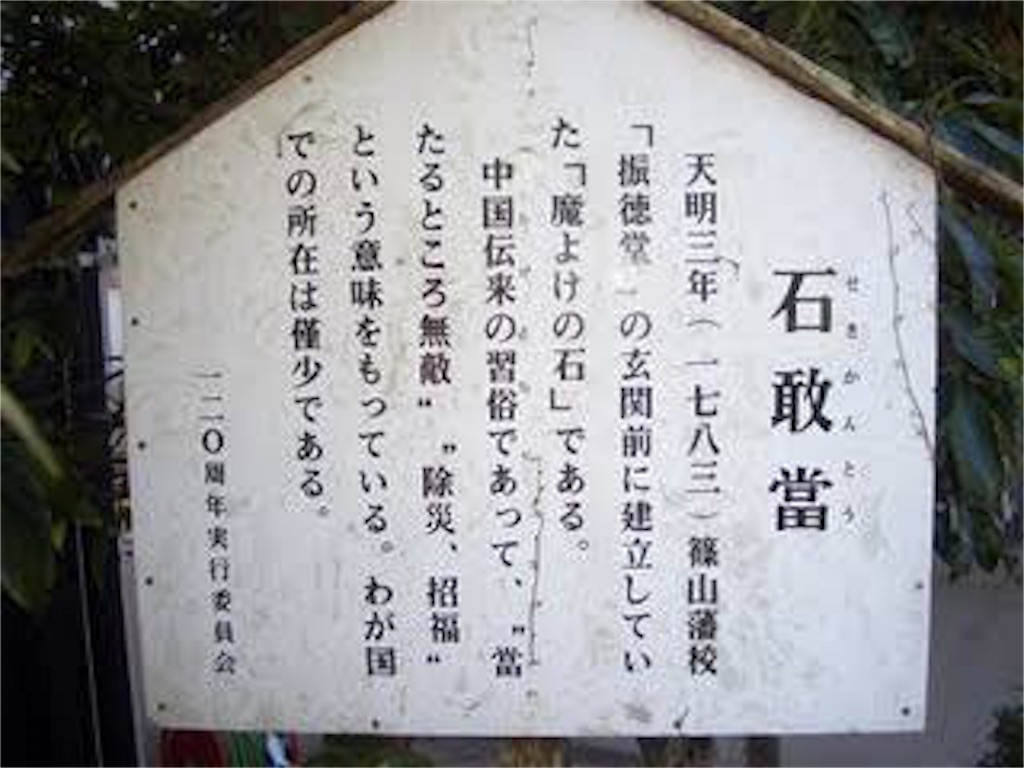 石敢當
せきかんとう
天明三年（一七八三）篠山藩校
「振徳堂」の玄関前に建立してい
た「魔よけの石」である。
中国伝来の習俗であって、〝當
たるところ無敵〟〝除災、招福〟
という意味をもっている。わが国
での所在は僅少である。
一二〇周年実行委員会